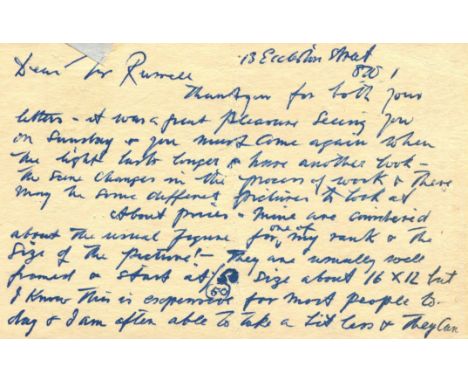 13 Eccleston Street
Dear Mr Russell SW1
Thankyou for both your
letters - it was a great pleasure seeing you
on Sunday & you must come again when
the light lasts longer & have another look -
the scene changes in the process of work & there
may be some different pictures to look at
About prices - mine are considered
about the usual figure for one of my rank & the
size of the picture! - They are usually well
framed & start at £50 size about 16 X 12 but
(50)
I know this is expensive for most people to-
day & I am often able to take a bit less & they can